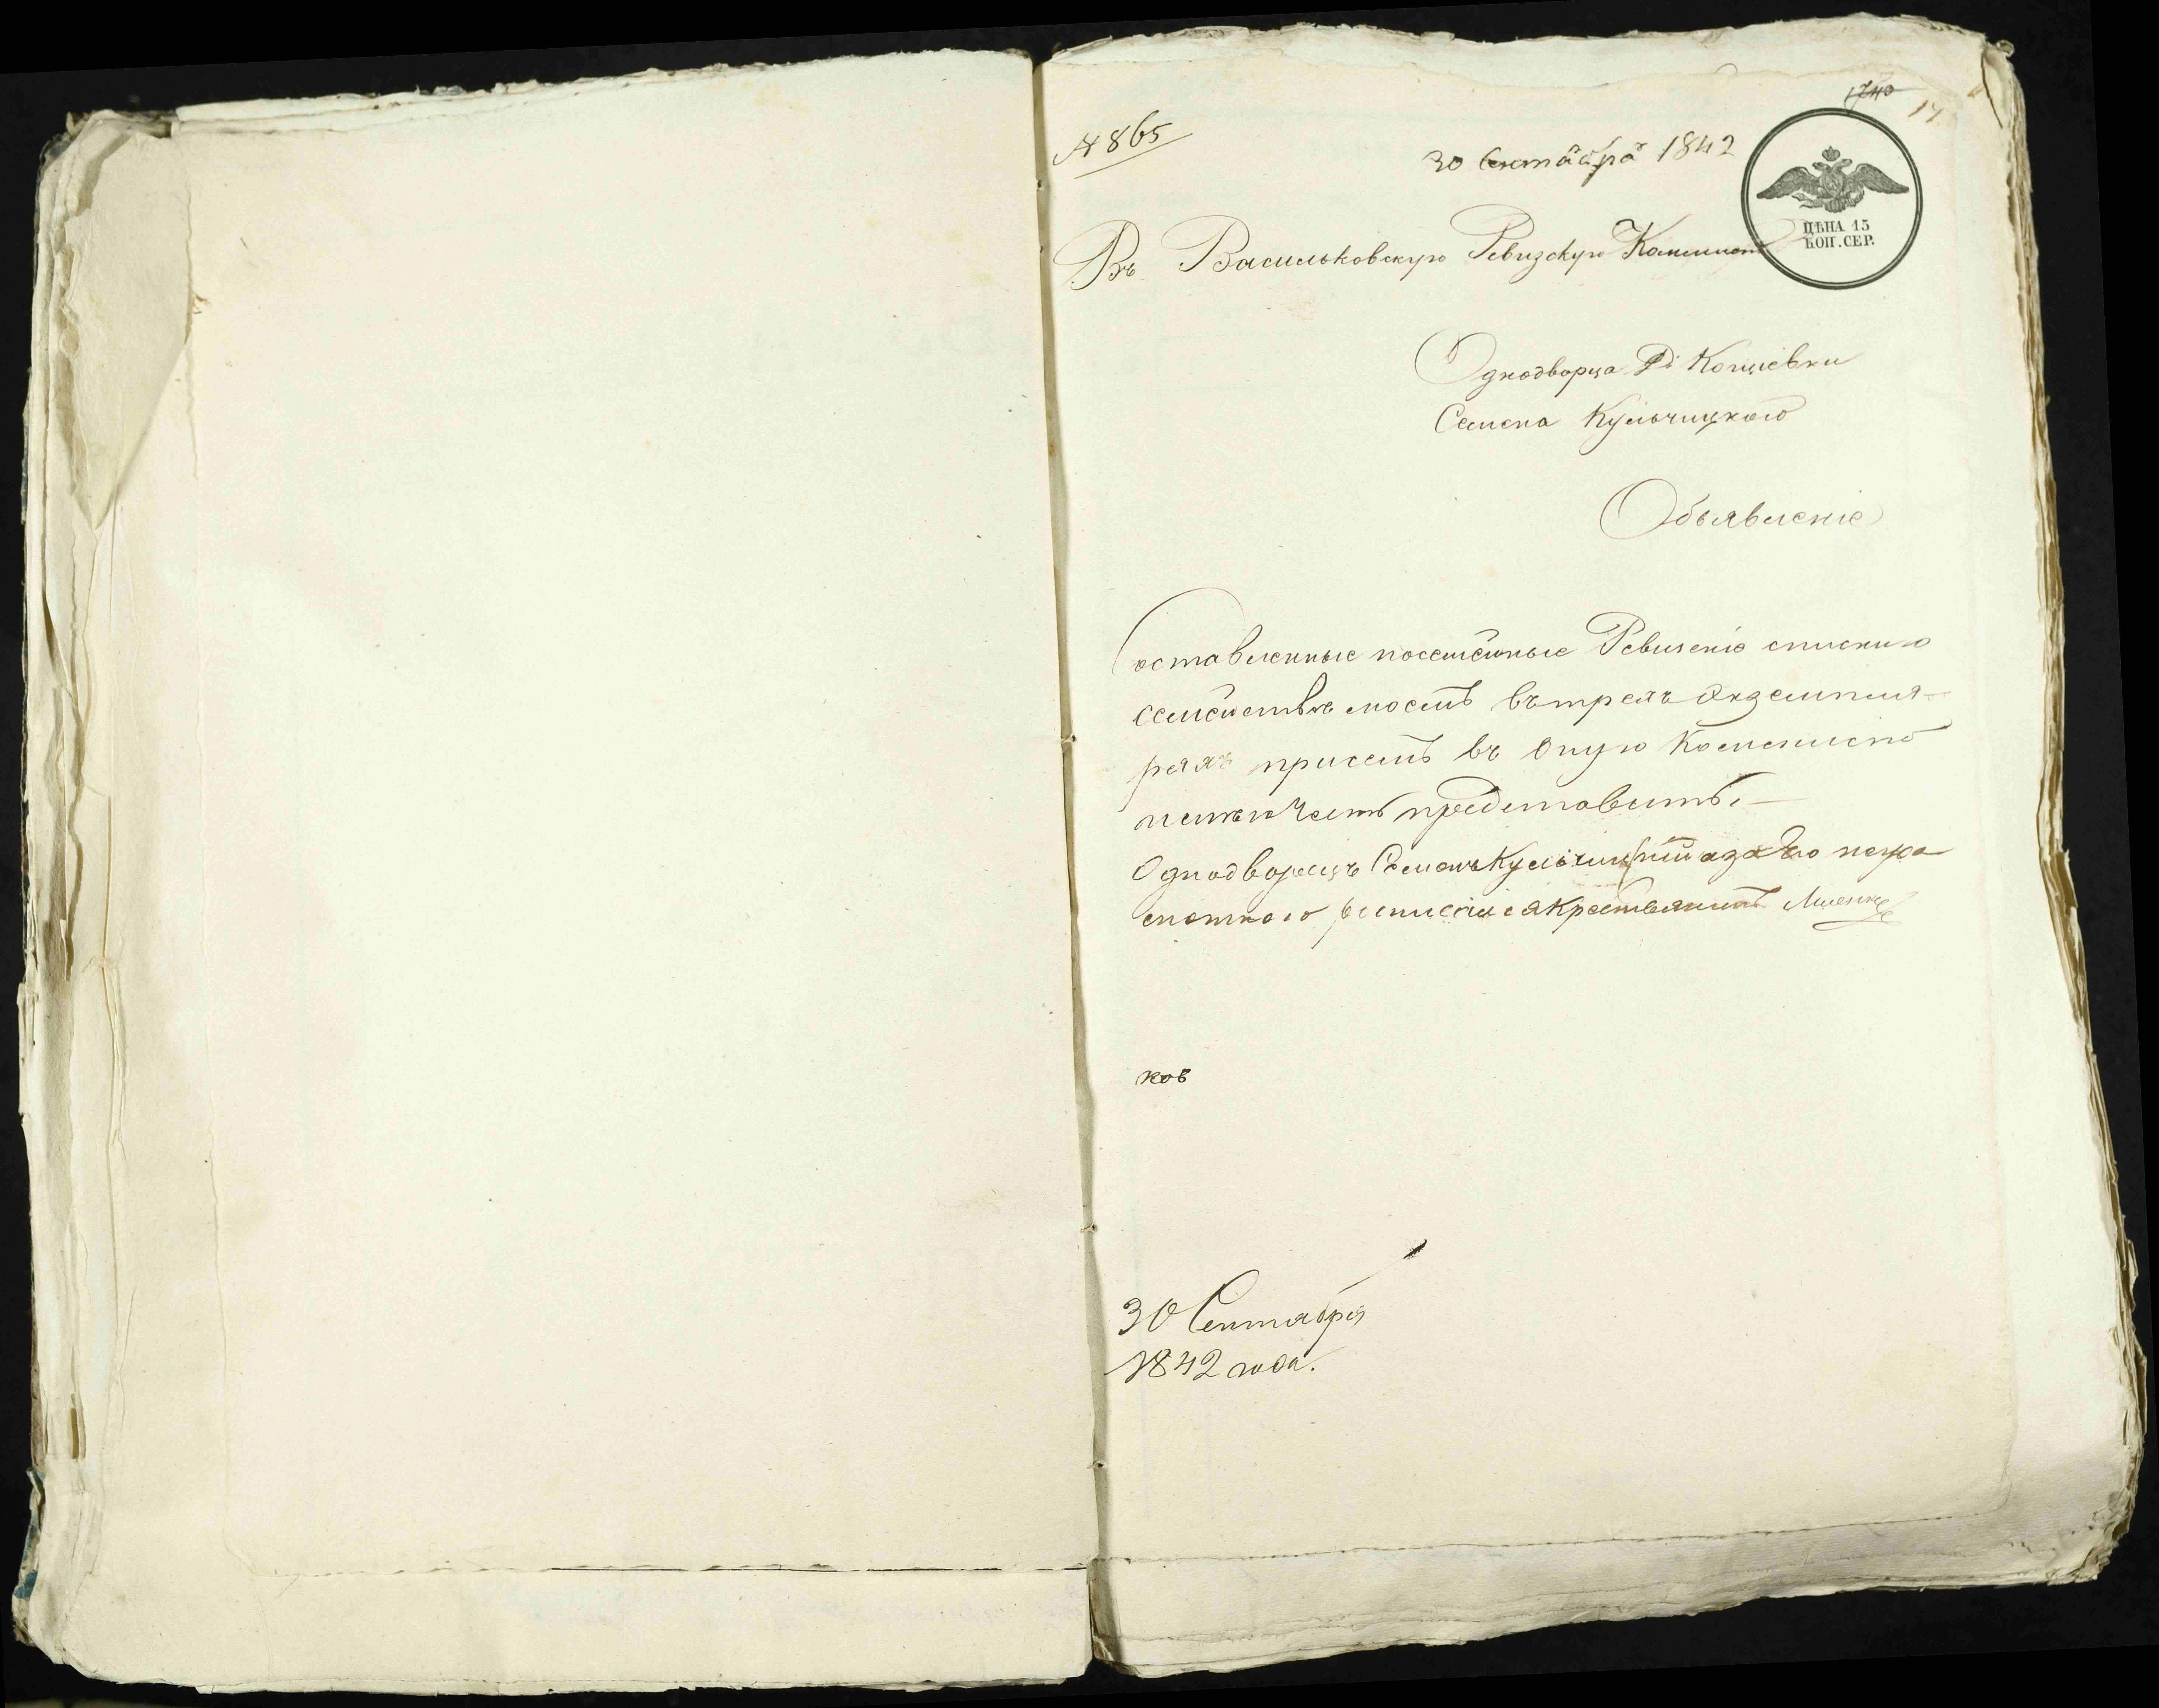 1740
17
№ 865
30 Сентября 1842
ЦѢНА 15
КОП. СЕР.
Въ Васильковскую Ревизскую Коммисію
Однодворца Д. Кощіевки
Семена Кульчицкого
Объявленіе
Составленные посемейные списки о
семействе моемъ въ трехъ Экземпля-
рахъ при семъ въ Оную Коммисію
честь предтавить.
Однодворецъ Семенъ Кульчицкий а за его негра
мотного росписался
ков
30 Сентября
1842 года.